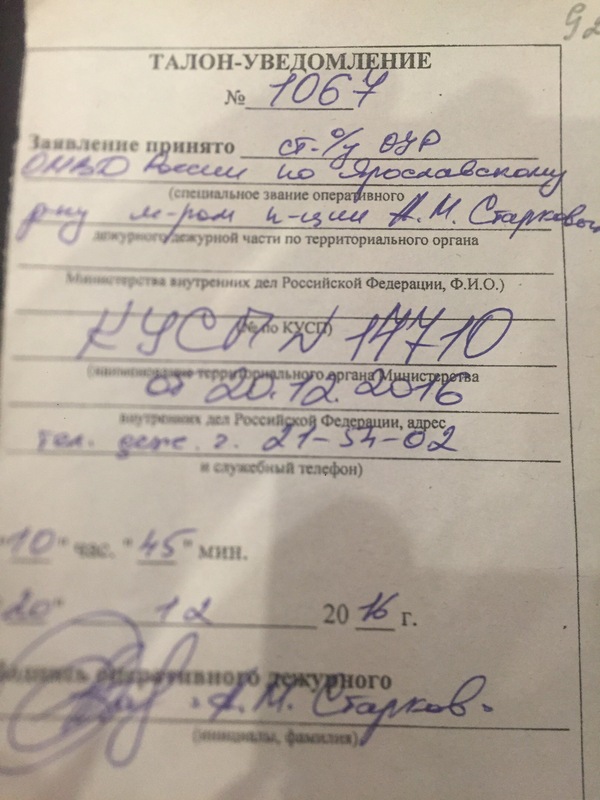 92
ТАЛОН-УВЕДОМЛЕНИЕ
№ 1067
Заявление принято ст. о/у ОУР
ОМВД России по Ярославскому
(специальное звание оперативного
р-ну м-ром п-ции А.М. Старковым
дежурного дежурной части по территориального органа
Министерства внутренних дел Российской Федерации, Ф.И.О.)
КУСП N 14710
(№ по КУСП)
(наименование территориального органа Министерства
от 20.12.2016
внутренних дел Российской Федерации, адрес
тел. деж. ч. 21-54-02
и служебный телефон)
"10" час. "45" мин.
"20" 12 2016 г.
подпись оперативного дежурного
А.М. Старков
(инициалы, фамилия)